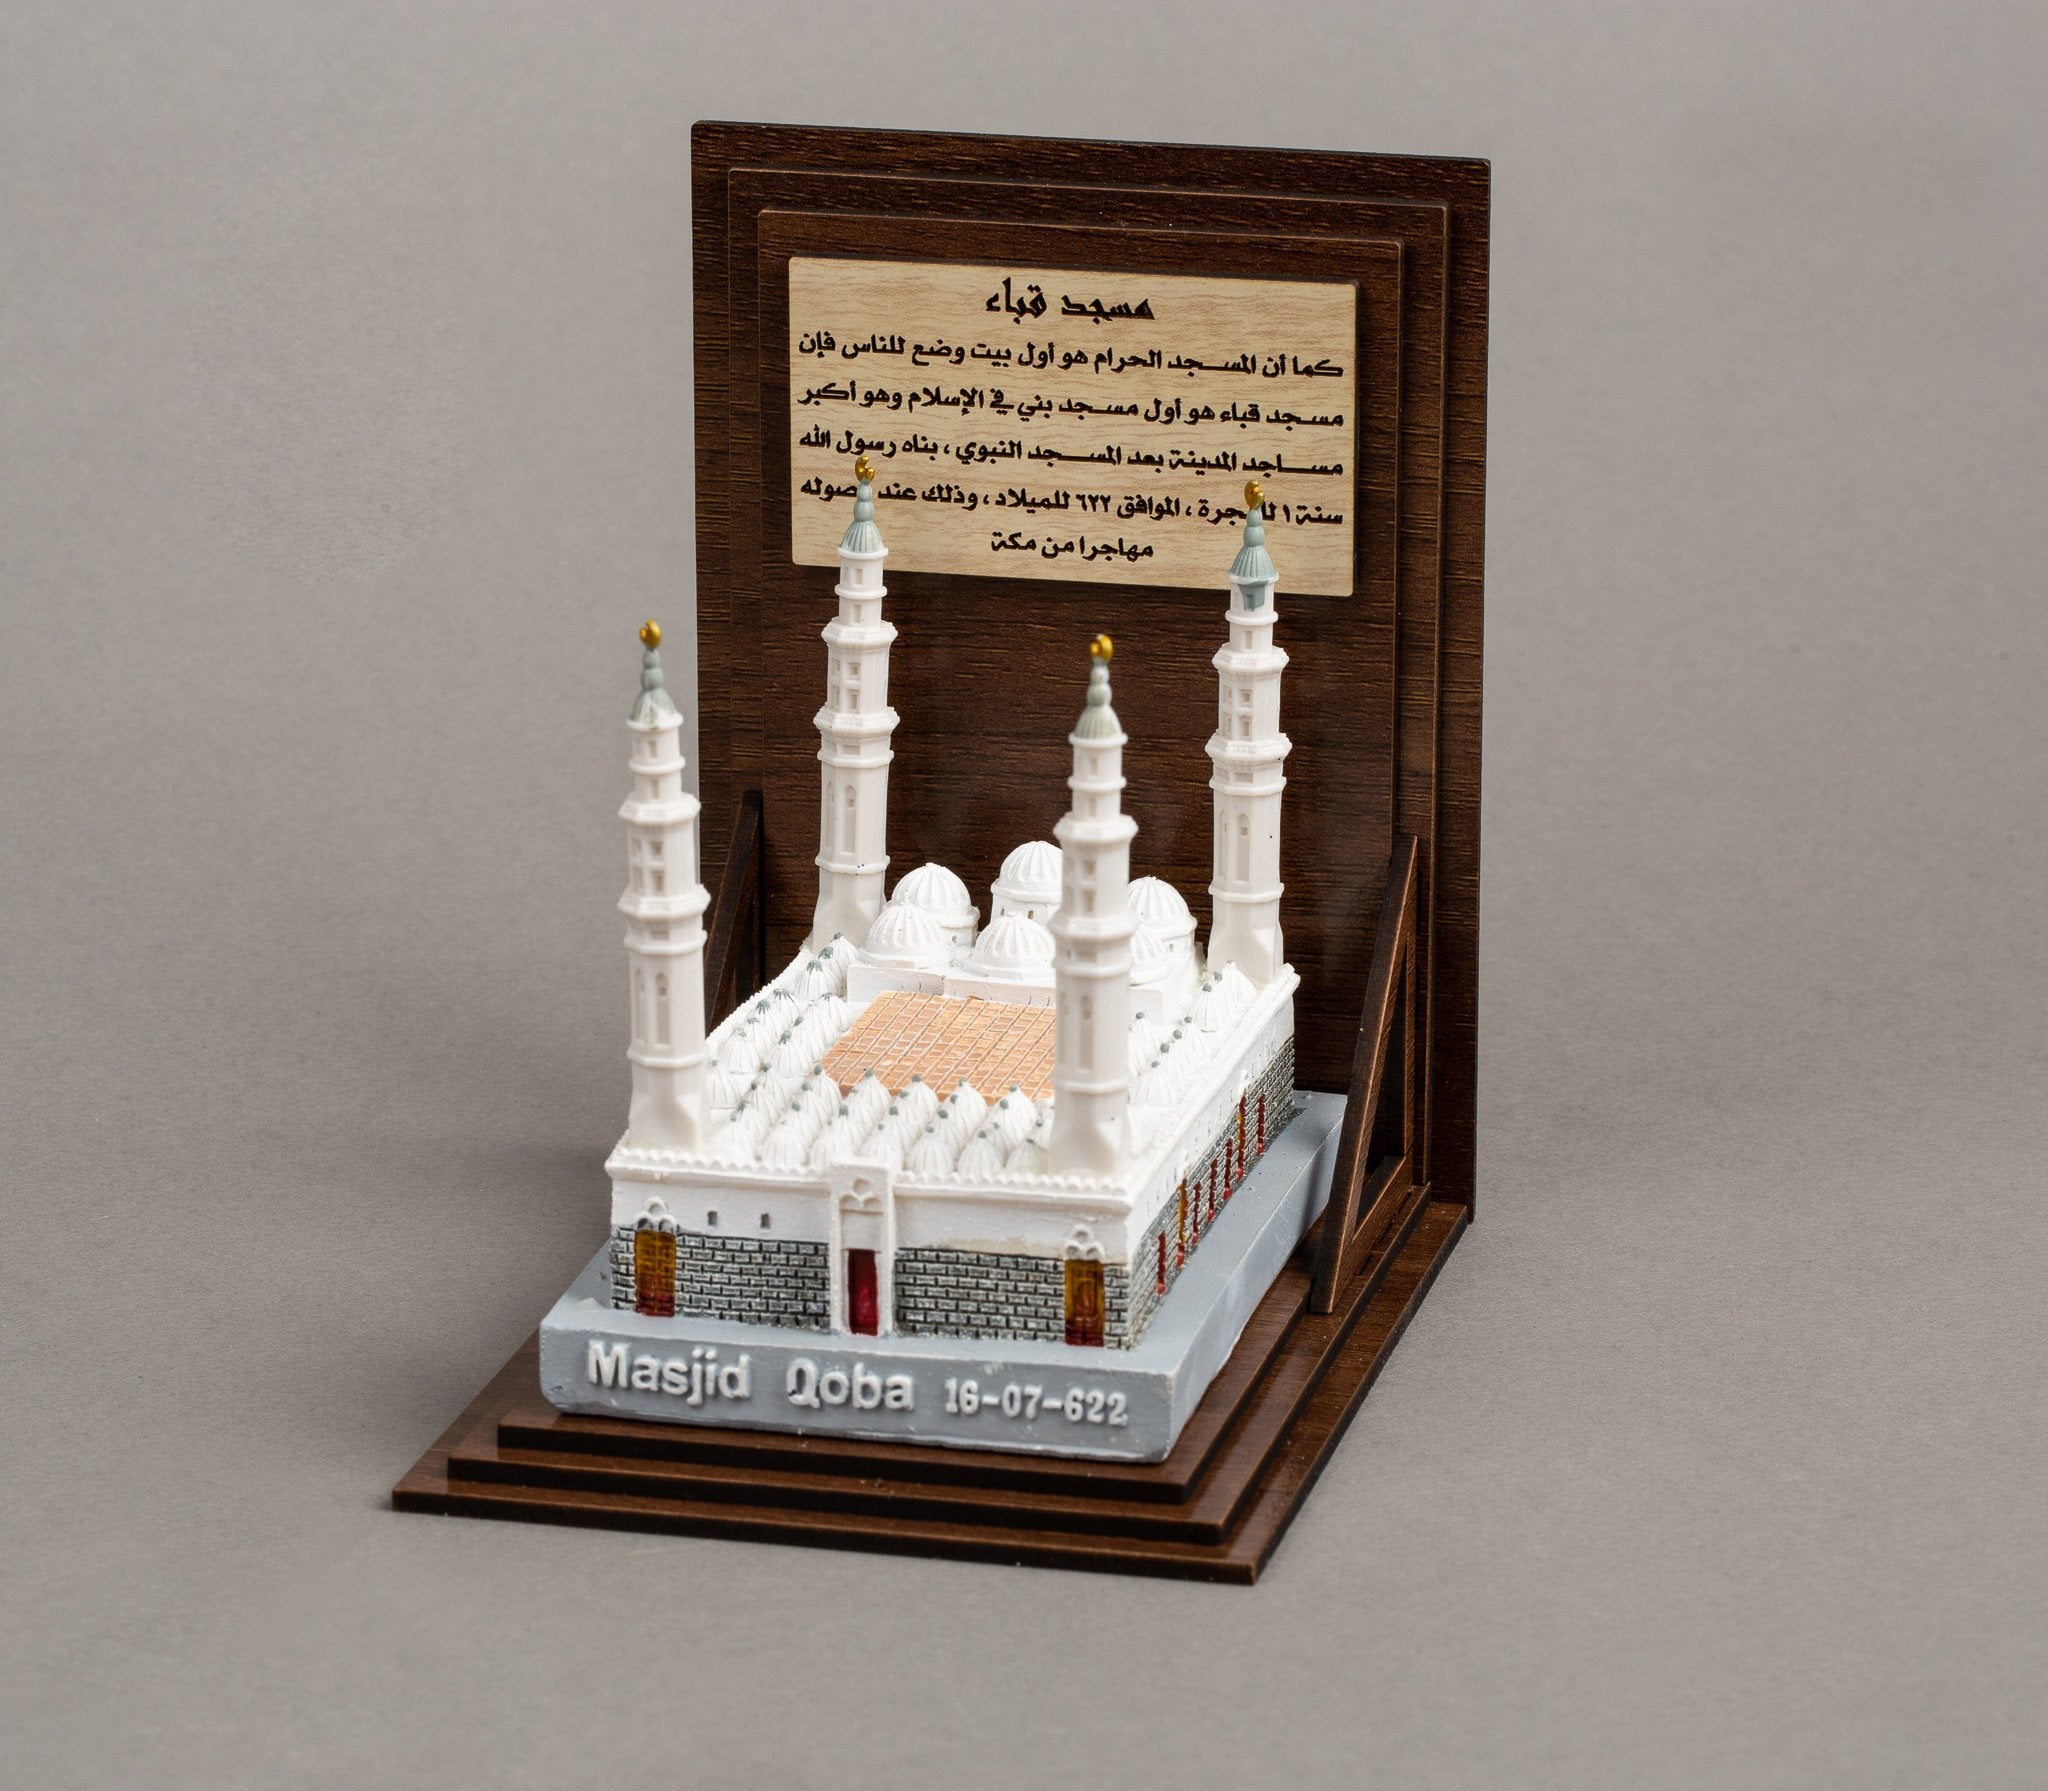 مسجد قباء
كما أن المسجد الحرام هو أول بيت وضع للناس فإن
مسجد قباء هو أول مسجد بني في الإسلام وهو أكبر
مساجد المدينة بعد المسجد النبوي ، بناه رسول الله
سنة ١ ، الموافق ٦٢٢ للميلاد ، وذلك عند
مهاجرا من مكة
Masjid Qoba 16-07-622